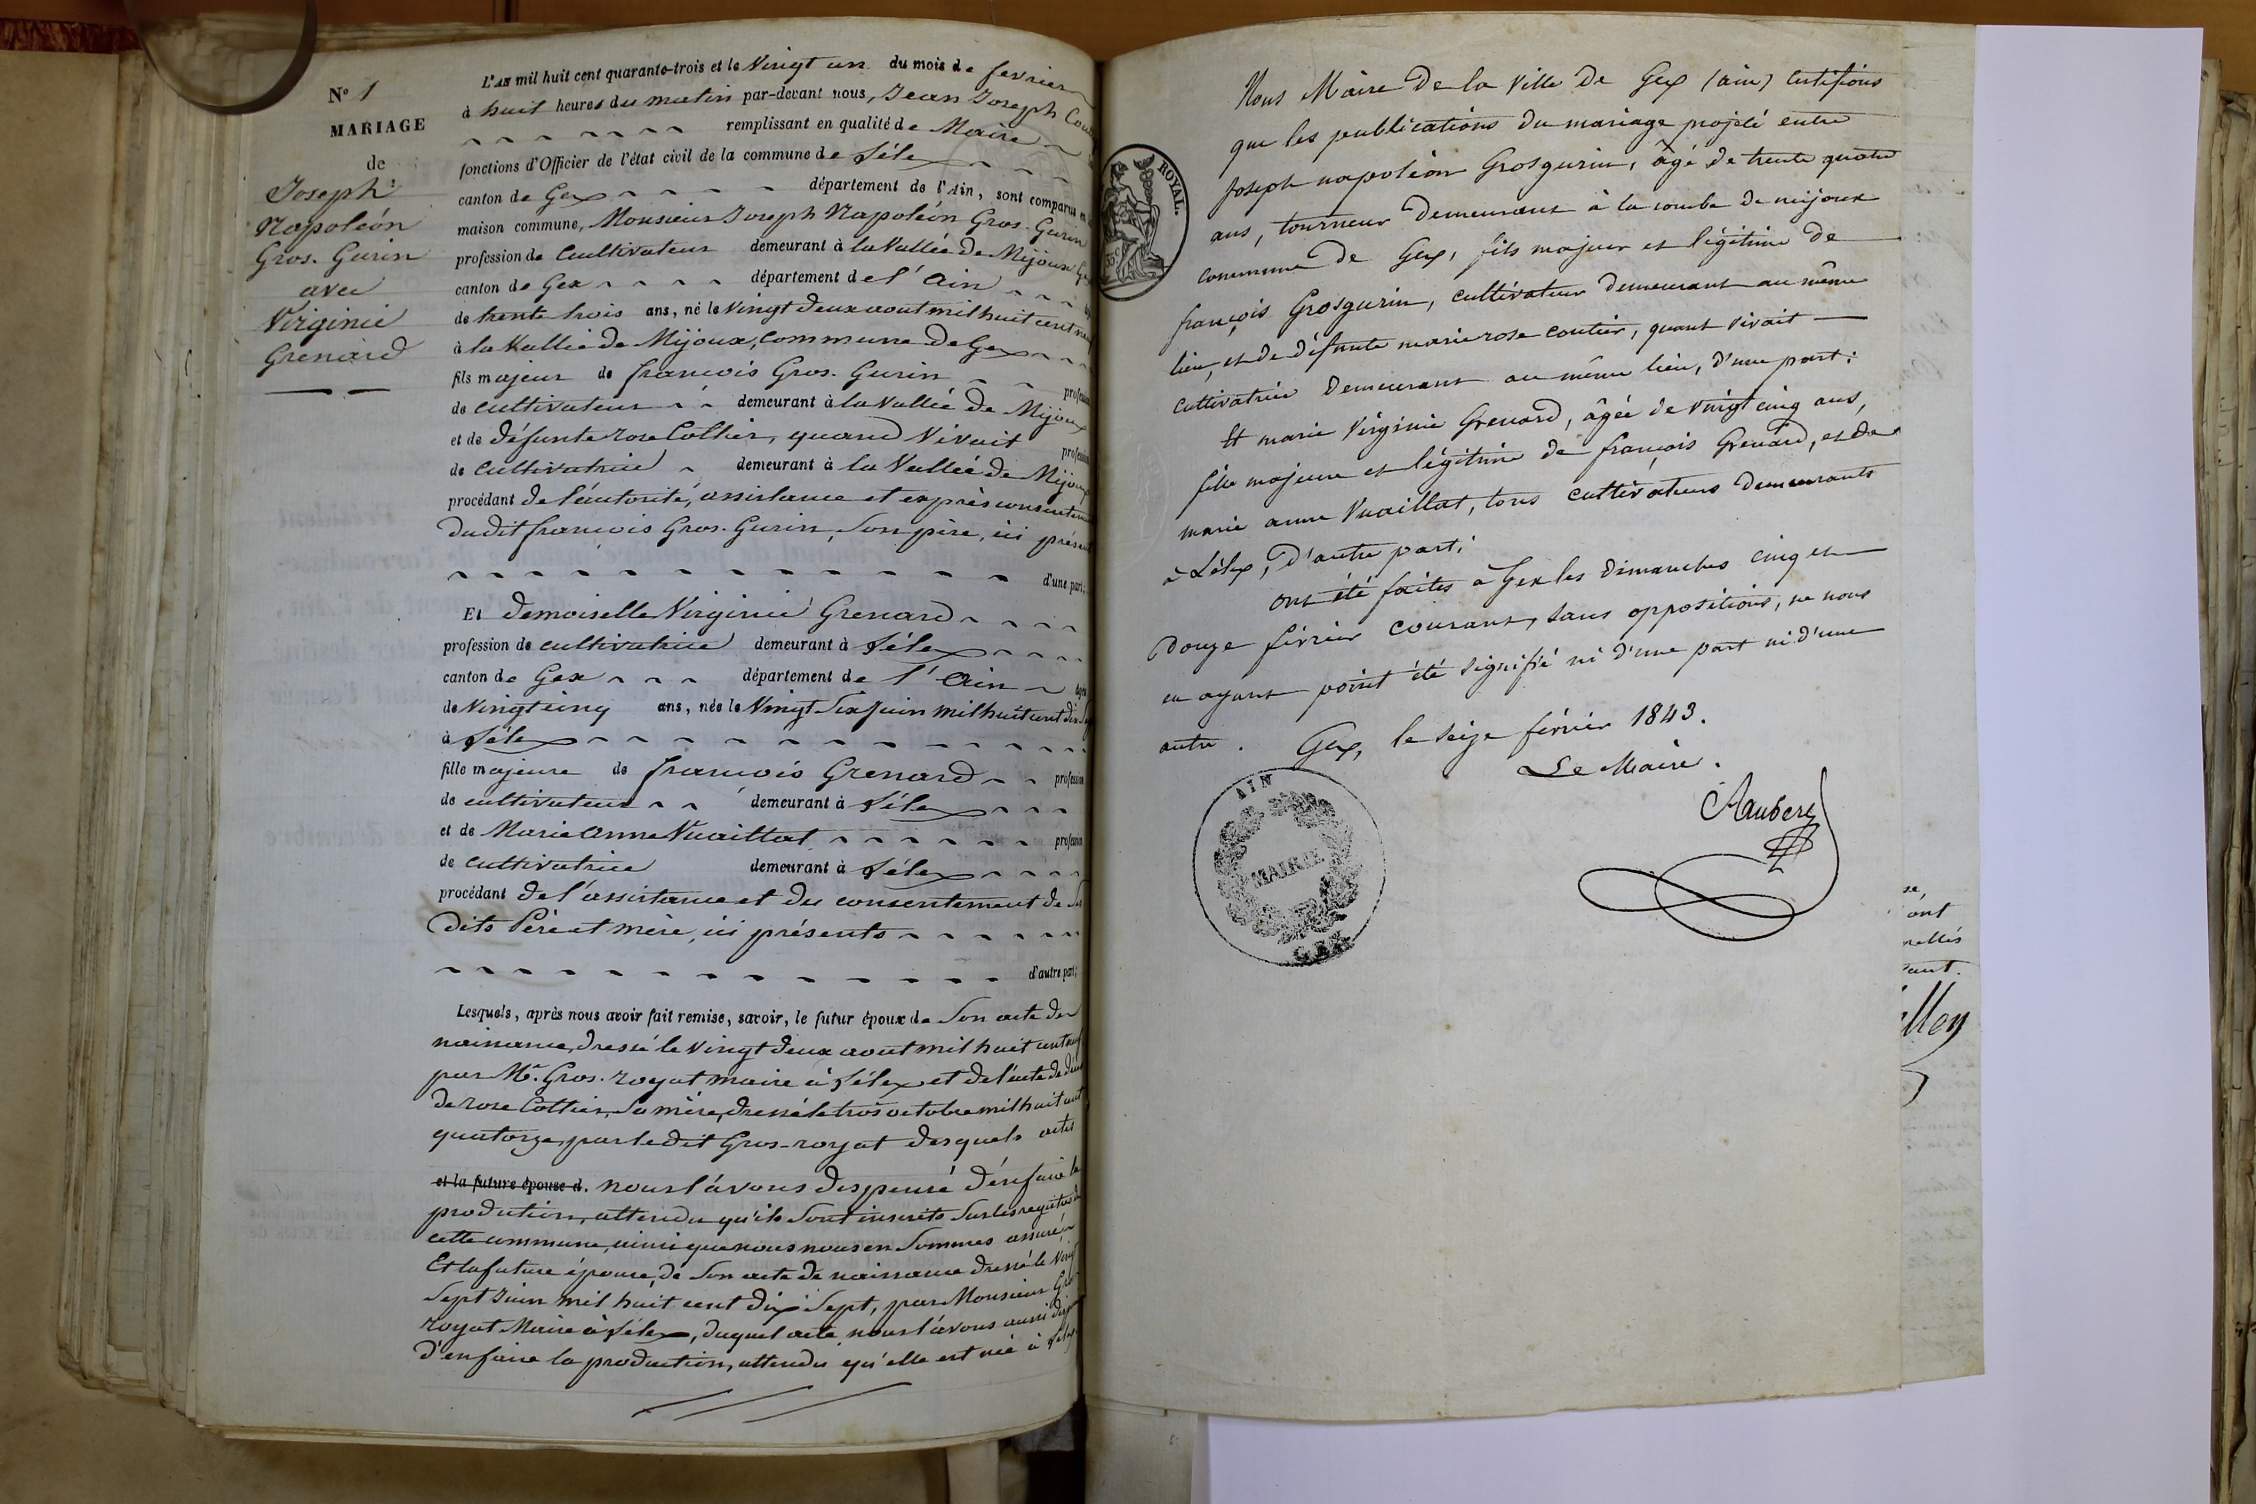 N° 1
MARIAGE
de
Joseph
Napoléon
Gros-Gurin
avec
Virginie
Grenard
L'AN mil huit cent quarante-trois et le Vingt un du mois de fevrier
à huit heures du matin par-devant nous, Jean Joseph
remplissant en qualité de Maire
fonctions d'Officier de l'état civil de la commune de Lélex
canton de Gex département de l'Ain, sont comparus en
maison commune, Monsieur Joseph Napoléon Gros-Gurin
profession de Cultivateur demeurant à la Vallée de Mijoux
canton de Gex département de l'Ain
de trente trois ans, né le Vingt deux aout mil huit cent neuf
à la Vallée de Mijoux, commune de Gex
fils majeur de françois Gros-Gurin profession
de cultivateur demeurant à la Vallée de Mijoux
et de défunte rose Cottier, quand Vivait profession
de Cultivatrice demeurant à la Vallée de Mijoux
procédant de l'autorité, assistance et exprès consentement
du dit françois Gros-Gurin, Son père, ici présent
d'une part,
Et demoiselle Virginie Grenard
profession de cultivatrice demeurant à Lélex
canton de Gex département de l'Ain âgée
de Vingt cinq ans, née le Vingt Six Juin mil huit cent dix Sept
à Lélex
fille majeure de françois Grenard profession
de cultivateur demeurant à Lélex
et de Marie Anne Vuaillat profession
de cultivatrice demeurant à Lélex
procédant de l'assistance et du consentement de Ses
dits Père et mère, ici présents
d'autre part;
Lesquels, après nous avoir fait remise, savoir, le futur époux de Son acte de
naissance, dressé le Vingt deux aout mil huit cent neuf
par Mr. Gros-royat maire à Lélex et de l'acte de décès
de rose Cottier, Sa mère, dressé le trois octobre mil huit cent
quatorze, par le dit Gros-royat desquels actes
et la future épouse d. nous l'avons dispensé d'en faire la
production, attendu qu'ils Sont inscrits Sur les registres de
cette commune, ainsi que nous nous en Sommes assuré
Et la future épouse, de Son acte de naissance dressé le Vingt
Sept Juin mil huit cent dix Sept, par Monsieur Gros
royat Maire à Lélex, duquel acte nous l'avons aussi dispensé
d'en faire la production, attendu qu'elle est née à Lélex
ROYAL.
Nous Maire de la Ville de Gex (ain) certifions
que les publications du mariage projeté entre
joseph napoléon Grosgurin, âgé de trente quatre
ans, tourneur demeurant à la combe de mijoux
commune de Gex, fils majeur et légitime de
françois Grosgurin, cultivateur demeurant au même
lieu, et de défunte marie rose coutier, quant vivait
cultivatrice demeurant au même lieu, d'une part;
Et marie Virginie Grenard, âgée de vingt cinq ans,
fille majeure et légitime de françois Grenard, et de
marie anne Vuaillat, tous cultivateurs demeurants
à Lélex, d'autre part;
ont été faites à Gex les dimanches cinq et
douze février courant, sans oppositions, ne nous
en ayant point été signifié ni d'une part ni d'une
autre. Gex, le seize février 1843.
Le Maire.
AIN
MAIRIE
GEX
ont